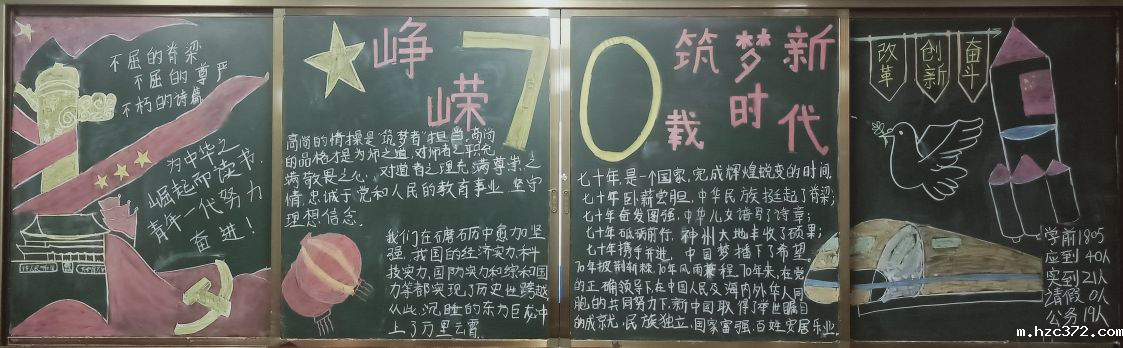 不屈的脊梁
不屈的尊严
不朽的诗篇
为中华之
崛起而读书
青年一代努力
奋进！
峥嵘70载
筑梦新时代
高尚的情操是"筑梦者"担当,高尚
的品格才是为师之道,对师者之职充
满敬畏之心,对道者之理充满尊崇之
情,忠诚于党和人民的教育事业,坚守
理想信念。
我们在磨石历中愈力加坚
强,我国的经济实力,科
技实力,国防实力和综和国
力等都实现了历史性跨越
从此,沉睡的东方巨龙冲
上了万里云霄
七十年,是一个国家,完成辉煌蜕变的时间,
七十年卧薪尝胆,中华民族挺起了脊梁;
七十年奋发图强,中华儿女谱写了诗章;
七十年砥砺前行,神州大地丰收了硕果;
七十年携手并进,中国梦播下了希望。
70年披荆斩棘,70年风雨兼程,70年来,在党
的正确领导下,在中国人民及海内外华人同
胞的共同努力下,新中国取得了举世瞩目
的成就,民族独立,国家富强,百姓安居乐业。
改革
创新
奋斗
学前1805
应到 40人
实到21人
请假 0人
公务19人
m.hzc372.com